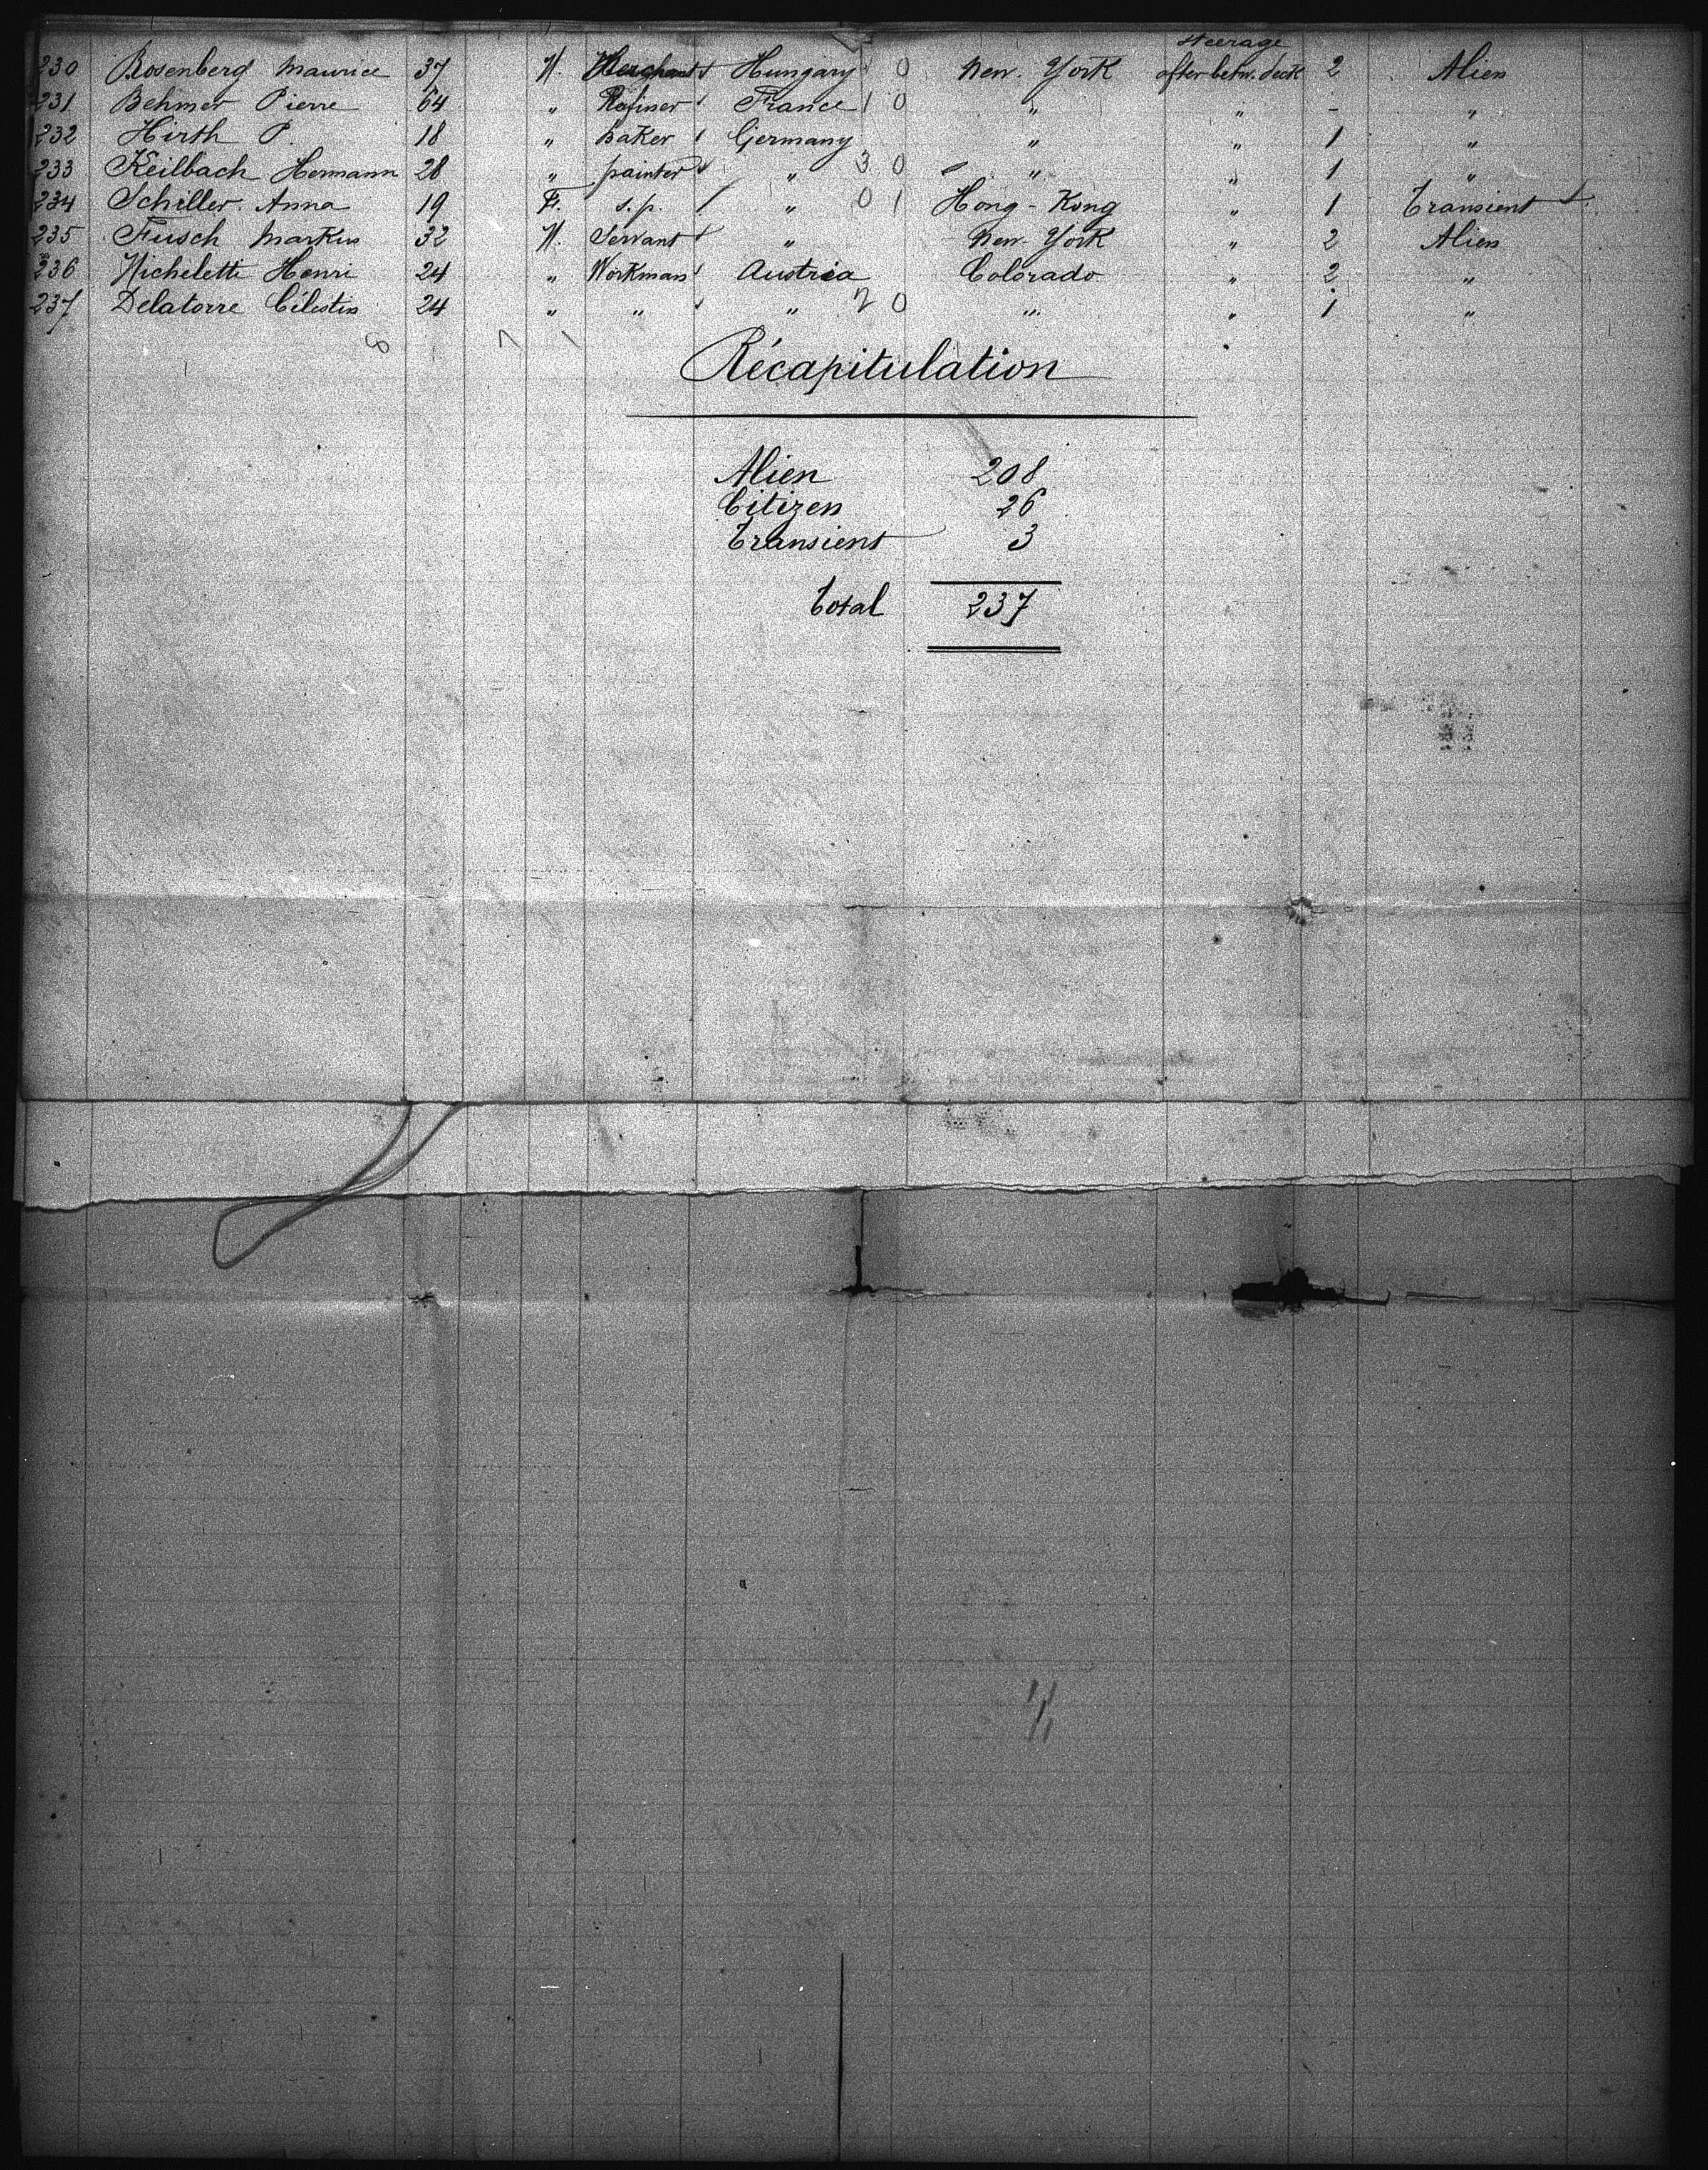 steerage
230 Rosenberg Maurice 37 M. Merchant Hungary 1 0 New-York after betw. deck 2 Alien
231 Behmer Pierre 64 " Refiner France 1 0 " " - "
232 Hirth P. 18 " baker Germany " " 1 "
233 Keilbach Hermann 28 " painter " 3 0 " " 1 "
234 Schiller Anna 19 F. s.p. " 0 1 Hong-Kong " 1 Transient
235 Fusch Markus 32 M. Servant " New-York " 2 Alien
236 Micheletti Henri 24 " Workman Austria Colorado " 2 "
237 Delatorre Célestin 24 " " " 2 0 " " 1 "
8 7 1
Récapitulation
Alien 208
Citizen 26
Transient 3
Total 237